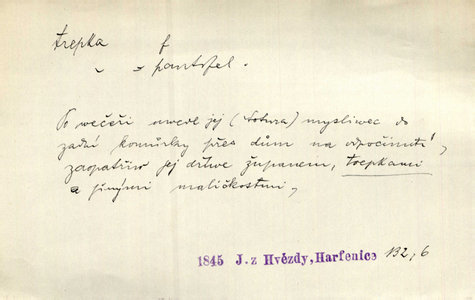 trepka f
pantofel.
Po wečeři uwedl jej (Sotura) mysliwec do
zadní komůrky přes dům na odpočinutí,
zaopatřiw jej dříwe županem, trepkami
a jinými maličkostmi,
1845 J. z Hvězdy, Harfenice B2, 6